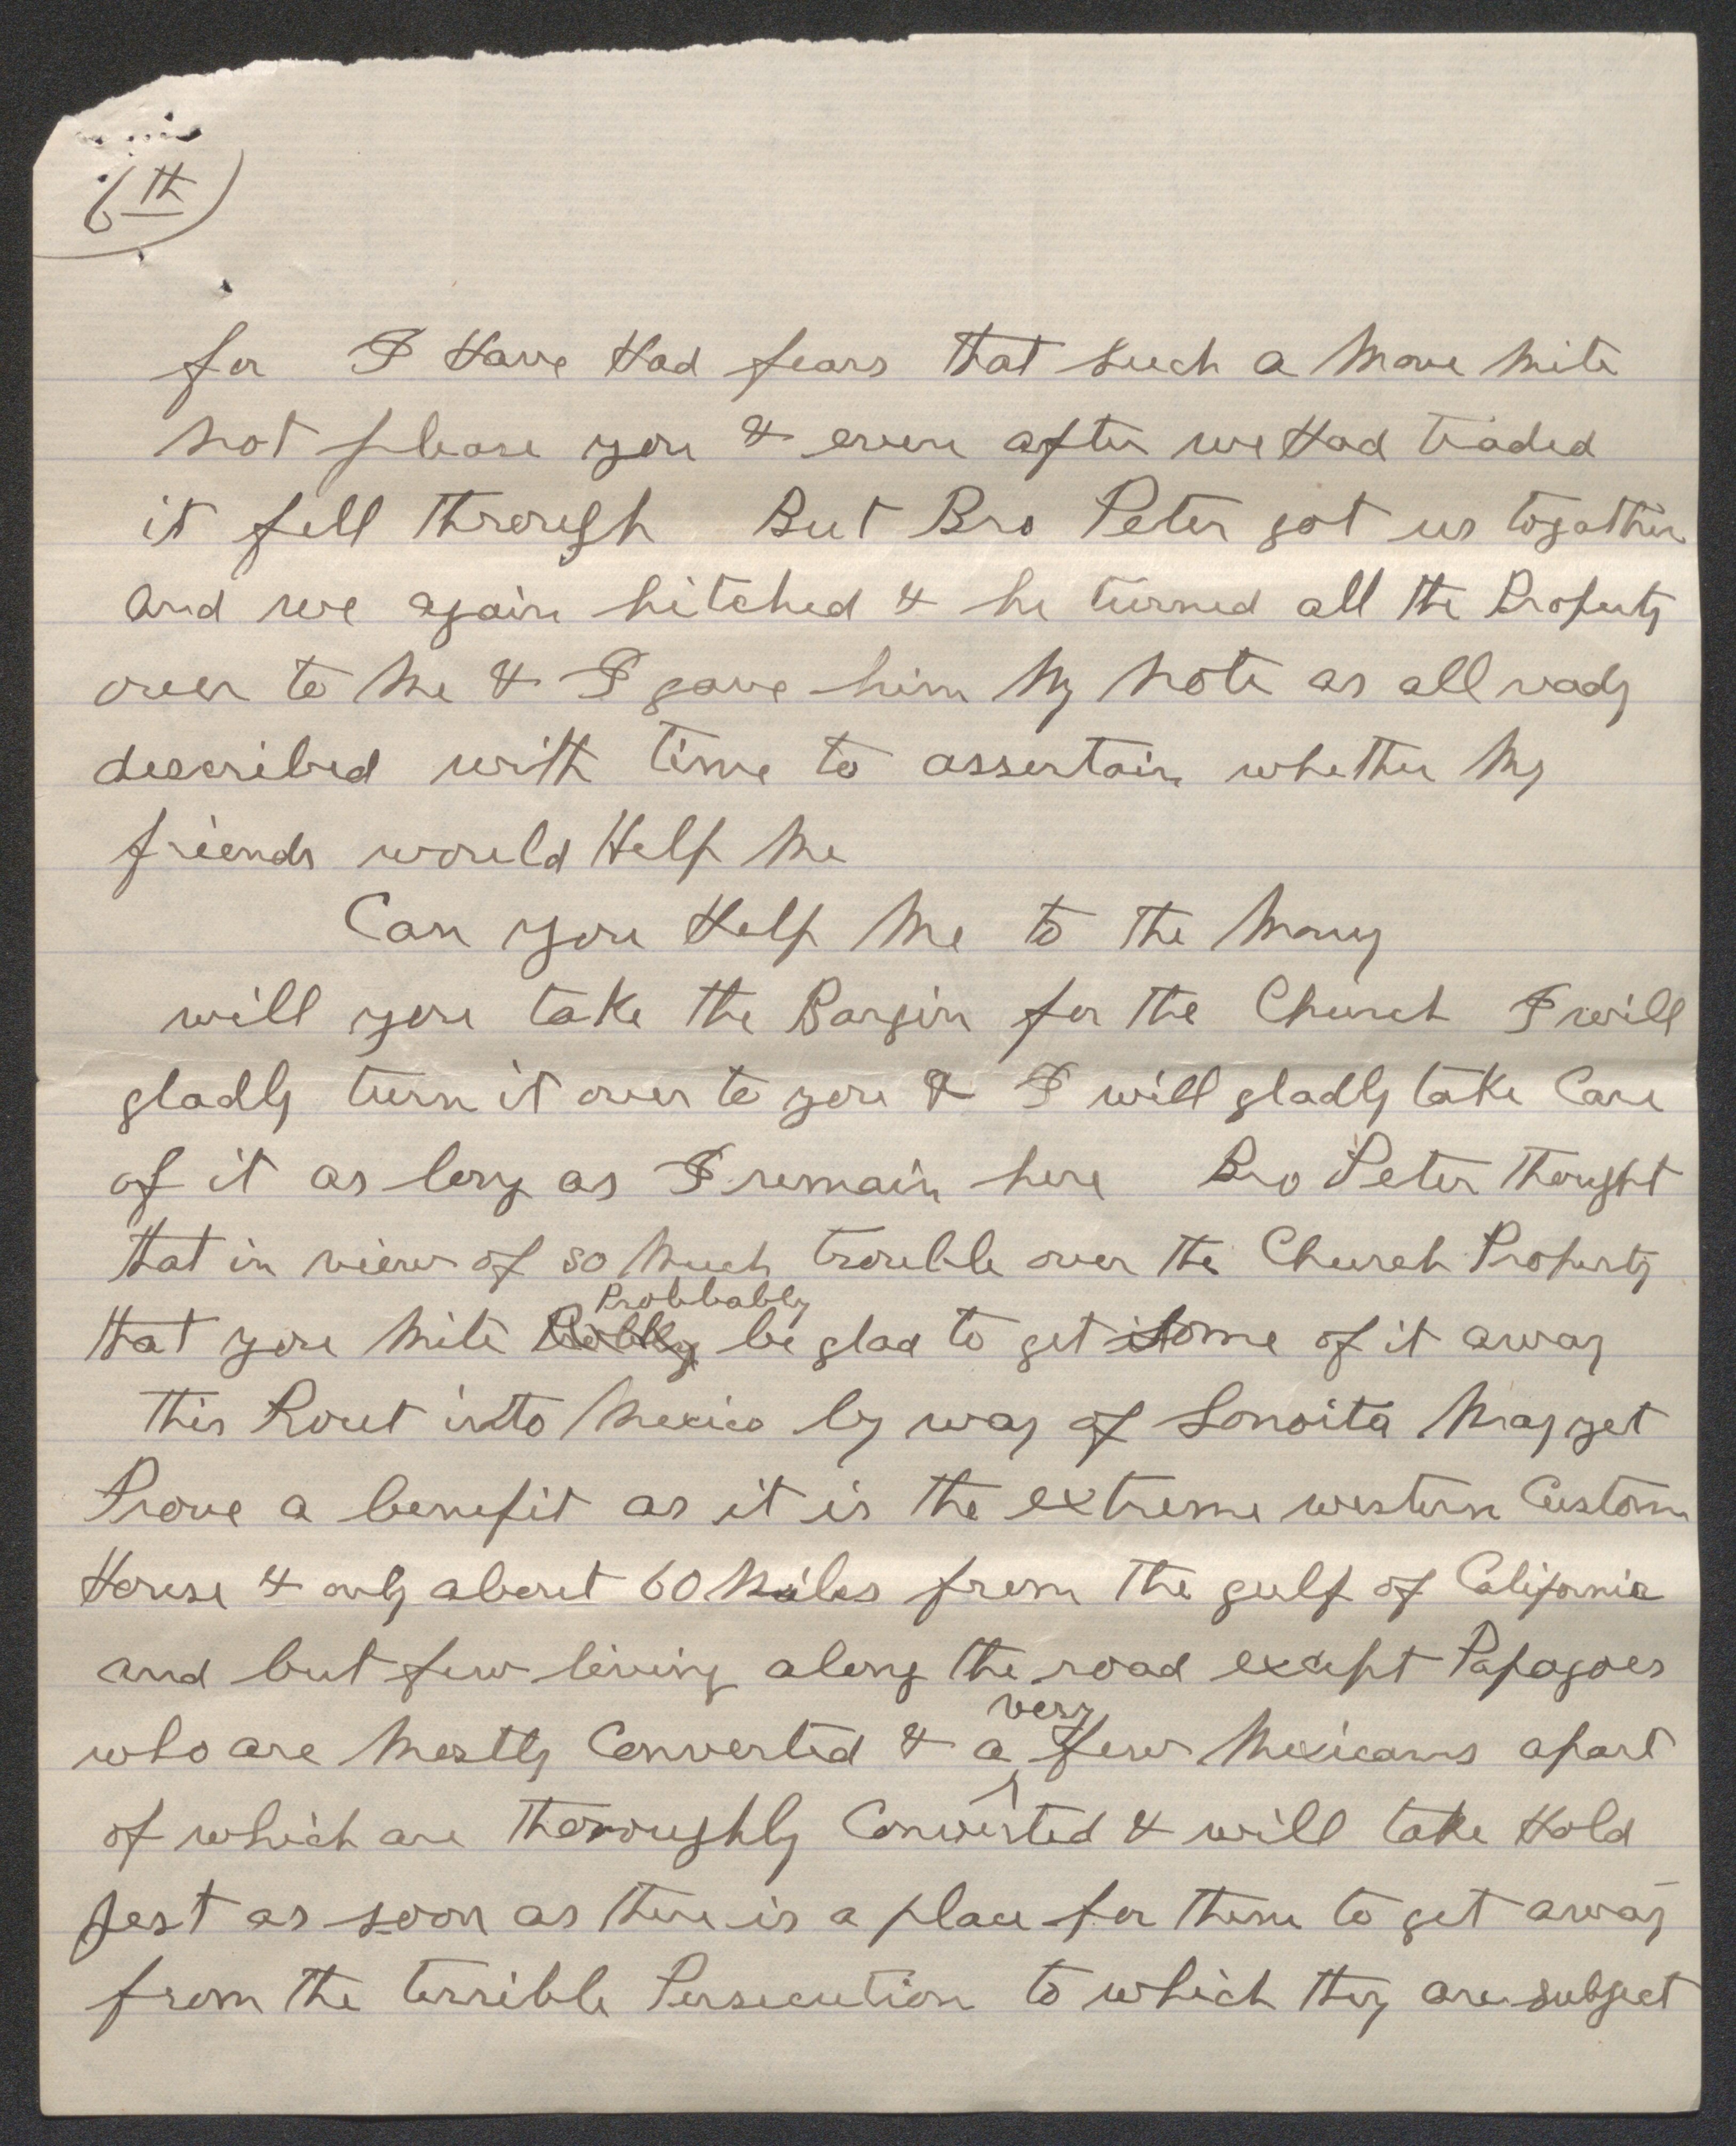 6th
for I Have Had fears that such a Move Mite
not please you & even after we Had traded
it fell through But Bro Peter got us togather
and we again hitched & he turned all the Property
over to Me & I gave him My Note as all rady
described with time to assertain whether My
friends would Help Me
Can you Help Me to the Money
will you take the Bargin for the Church I will
gladly turn it over to you & I will gladly take Care
of it as long as I remain here Bro Peter thought
that in view of so Much trouble over the Church Property
that you Mite Probbably be glad to get some of it away
This Rout into Mexico by way of Sonoita May yet
Prove a benefit as it is the extreme western Custom
House & only about 60 Miles from the gulf of California
and but few living along the road except Papagoes
who are Mostly Converted & a very few Mexicans apart
of which are thoroughly Converted & will take Hold
jest as soon as there is a place for them to get away
from the terrible Persecution to which they are subject